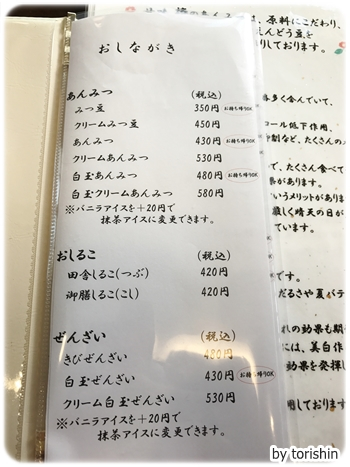 おしながき
あんみつ (税込)
みつ豆 350円 お持ち帰りOK
クリームみつ豆 450円
あんみつ 430円 お持ち帰りOK
クリームあんみつ 530円
白玉あんみつ 480円 お持ち帰りOK
白玉クリームあんみつ 580円
※バニラアイスを+20円で
抹茶アイスに変更できます。
おしるこ (税込)
田舎しるこ(つぶ) 420円
御膳しるこ(こし) 420円
ぜんざい (税込)
きびぜんざい 480円
白玉ぜんざい 430円 お持ち帰りOK
クリーム白玉ぜんざい 530円
※バニラアイスを+20円で
抹茶アイスに変更できます。
のあんみつは、原料にこだわり、
えんどう豆を
しております。
多く含んでいて、
コール低下作用、
抑制など、たくさんの
で、たくさん食べて
果があります。
いうメリットがありま
難しく晴天の日が
ています。
です。
だるさや夏バテ
れの効果も期
には、美白作
効果を発揮し
用しております
by torishin